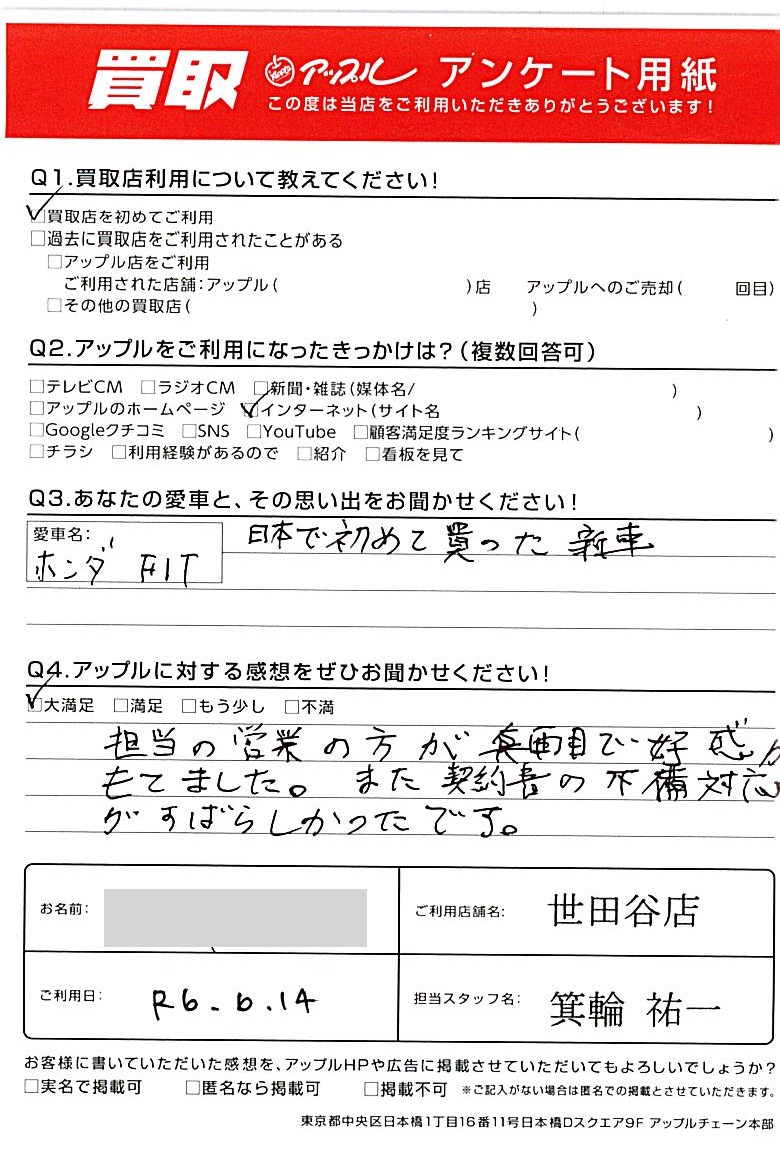 買取 Apple アップル アンケート用紙
この度は当店をご利用いただきありがとうございます!
Q1.買取店利用について教えてください!
☑買取店を初めてご利用
□過去に買取店をご利用されたことがある
□アップル店をご利用
ご利用された店舗:アップル( )店 アップルへのご売却( 回目)
□その他の買取店( )
Q2.アップルをご利用になったきっかけは?(複数回答可)
□テレビCM □ラジオCM □新聞・雑誌(媒体名/ )
□アップルのホームページ ☑インターネット(サイト名 )
□Googleクチコミ □SNS □YouTube □顧客満足度ランキングサイト( )
□チラシ □利用経験があるので □紹介 □看板を見て
Q3.あなたの愛車と、その思い出をお聞かせください!
愛車名: ホンダ FIT
日本で初めて買った新車
Q4.アップルに対する感想をぜひお聞かせください!
☑大満足 □満足 □もう少し □不満
担当の営業の方が真面目で好感が
もてました。また契約書の不備対応
がすばらしかったです。
お名前:
ご利用店舗名: 世田谷店
ご利用日: R6.6.14
担当スタッフ名: 箕輪 祐一
お客様に書いていただいた感想を、アップルHPや広告に掲載させていただいてもよろしいでしょうか?
□実名で掲載可 □匿名なら掲載可 □掲載不可 ※ご記入がない場合は匿名での掲載とさせていただきます。
東京都中央区日本橋1丁目16番11号日本橋Dスクエア9F アップルチェーン本部